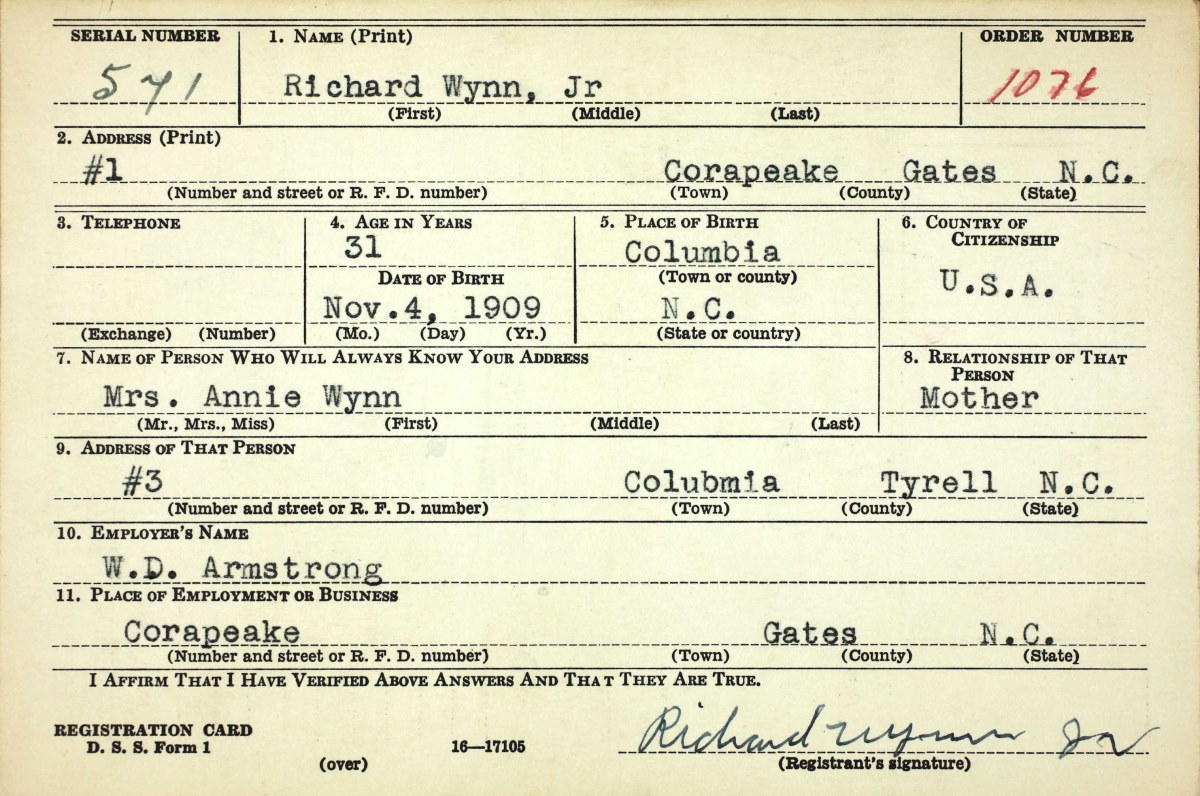 SERIAL NUMBER 1. NAME (Print) ORDER NUMBER
571 Richard Wynn, Jr 1076
(First) (Middle) (Last)
2. ADDRESS (Print)
#1 Corapeake Gates N.C.
(Number and street or R. F. D. number) (Town) (County) (State)
3. TELEPHONE 4. AGE IN YEARS 5. PLACE OF BIRTH 6. COUNTRY OF CITIZENSHIP
31 Columbia
DATE OF BIRTH (Town or county) U.S.A.
Nov.4, 1909 N.C.
(Exchange) (Number) (Mo.) (Day) (Yr.) (State or country)
7. NAME OF PERSON WHO WILL ALWAYS KNOW YOUR ADDRESS 8. RELATIONSHIP OF THAT PERSON
Mrs. Annie Wynn Mother
(Mr., Mrs., Miss) (First) (Middle) (Last)
9. ADDRESS OF THAT PERSON
#3 Colubmia Tyrell N.C.
(Number and street or R. F. D. number) (Town) (County) (State)
10. EMPLOYER'S NAME
W.D. Armstrong
11. PLACE OF EMPLOYMENT OR BUSINESS
Corapeake Gates N.C.
(Number and street or R. F. D. number) (Town) (County) (State)
I AFFIRM THAT I HAVE VERIFIED ABOVE ANSWERS AND THAT THEY ARE TRUE.
REGISTRATION CARD
D. S. S. Form 1 16—17105 Richard Wynn Jr
(over) (Registrant's signature)